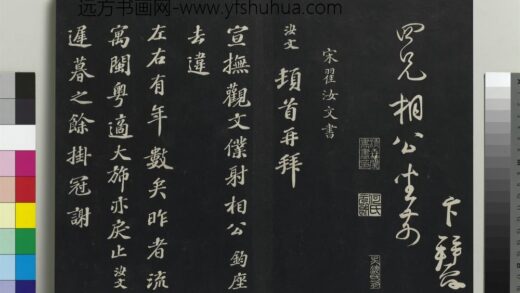 远方书画网-www.yfshuhua.com
四兄相公坐前
宋翟汝文書
汝文 頓首再拜
宣撫觀文僕射相公 鈞座
去違
左右有年數矣昨者流
寓閩粤適大旆亦戾止 汝文
遲暮之餘掛冠謝